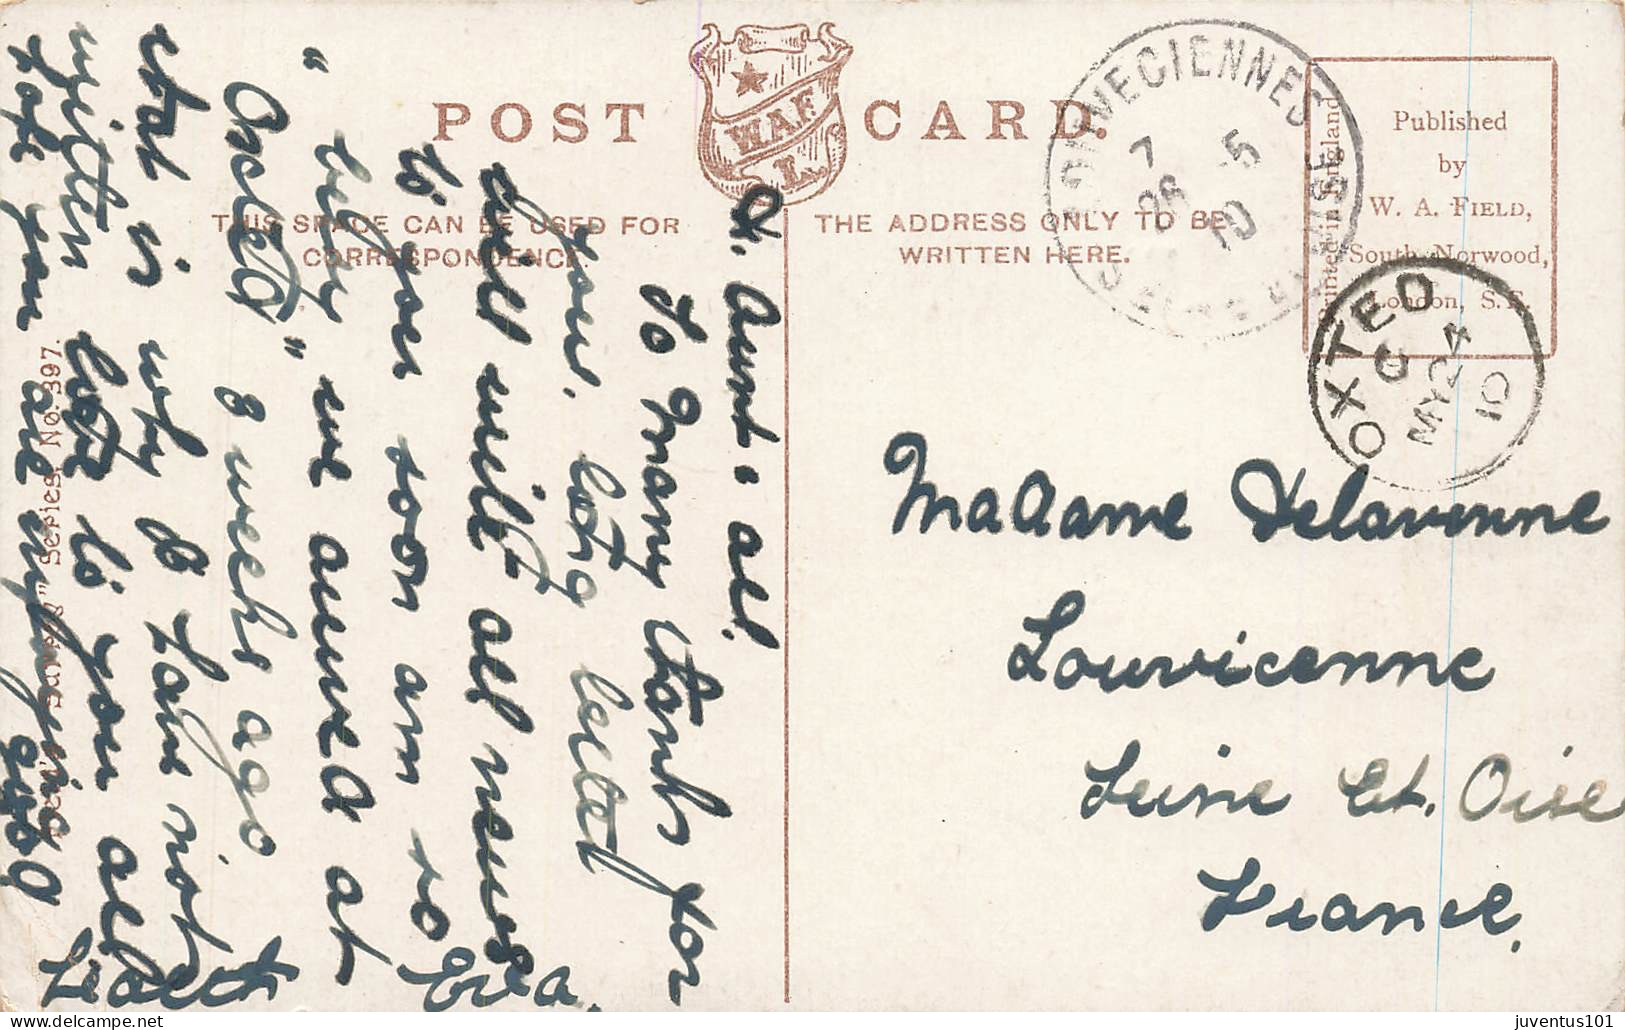 POST CARD.
W.A.F.
L.
THIS SPACE CAN BE USED FOR
CORRESPONDENCE.
THE ADDRESS ONLY TO BE
WRITTEN HERE.
Published
by
W. A. FIELD,
South Norwood,
London, S.E.
Printed in England
Series No. 397.
OXTED
C
MY 24
10
7 5
26 10
D. Aunt & all.
To Many thanks for
your long letter
will write all news
to you soon am so
busy we arrived at
"Oxted" 3 weeks ago
that is why I have not
written love to you all
hope you are enjoying good
Eva.
Madame Delavenne
Louvicenne
Seine Et. Oise
France.
juventus101